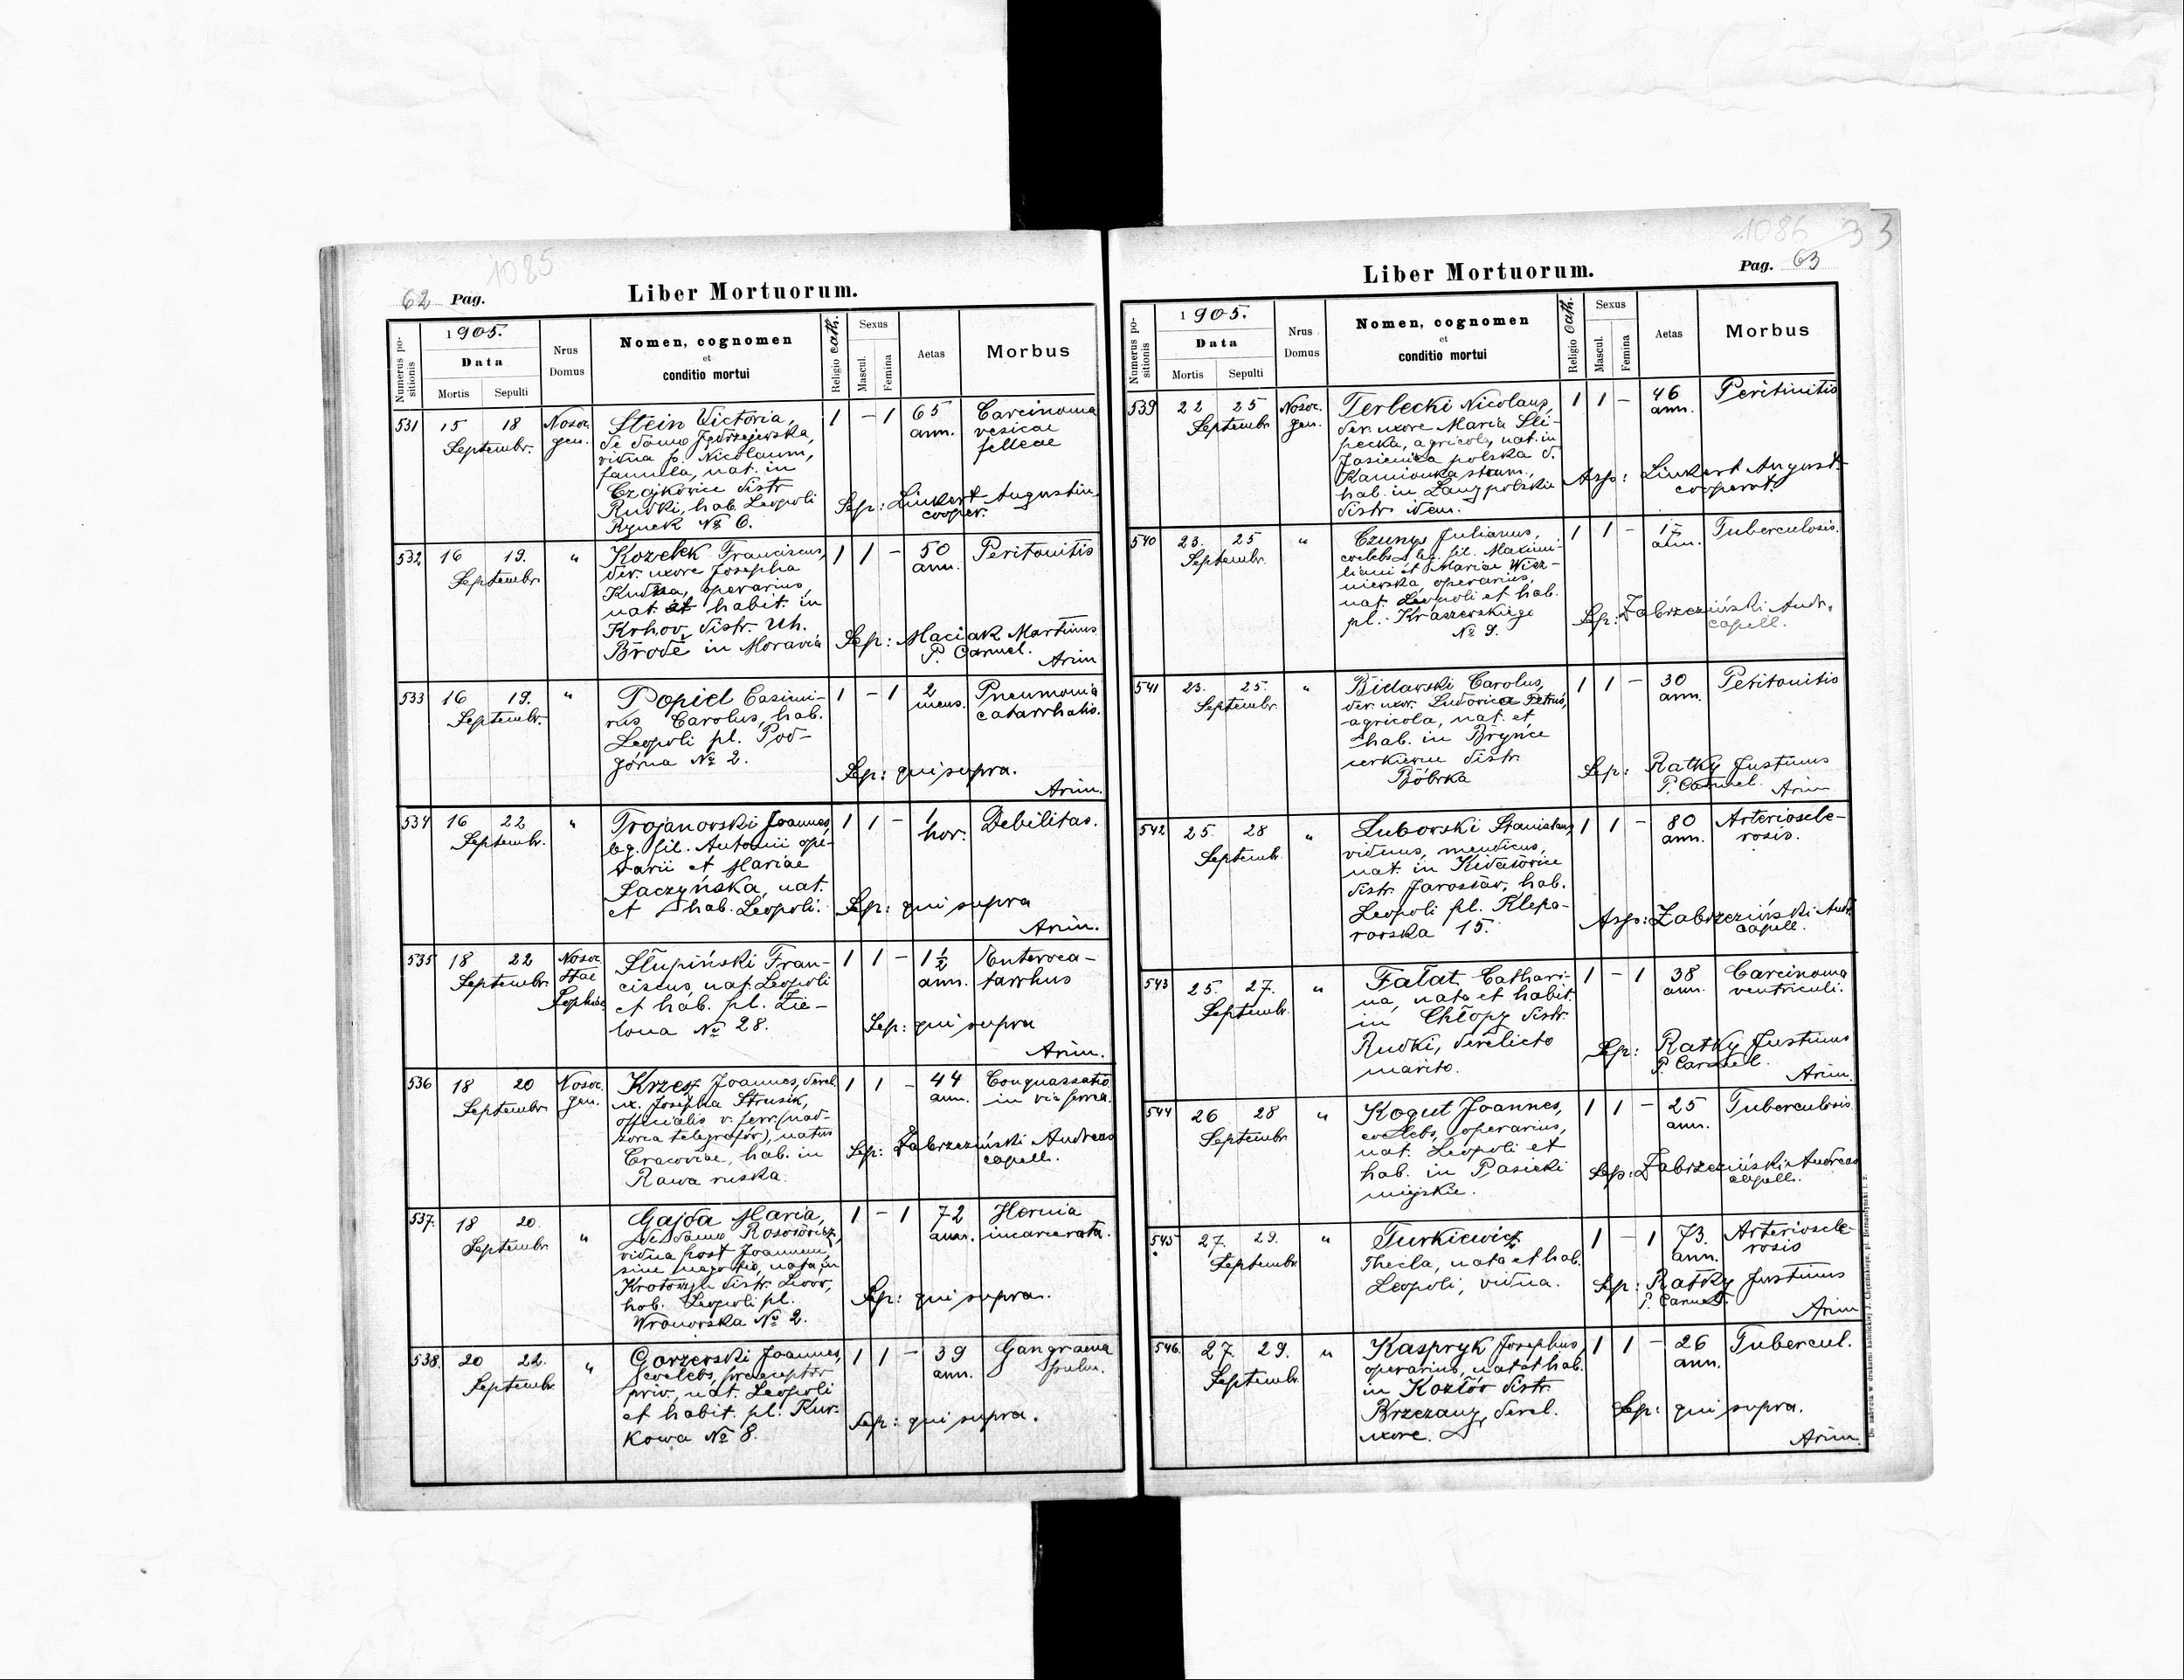 1085
62 Pag.
Liber Mortuorum.
Numerus positionis
1905.
Data
Mortis
Sepulti
Nrus Domus
Nomen, cognomen
et
conditio mortui
Religio cath.
Sexus
Mascul.
Femina
Aetas
Morbus
531 15 18 Nosoc. Stein Victoria, 1 - 1 65 Carcinoma
Septembr. gen. de domo Jędrzejewska, ann. vesicae
vidua p. Nicolaum, felleae
famula, nat. in
Czajkowice distr.
Rudki, hab. Leopoli Sep: Linkert Augustin.
Rynek № 6. cooper.
532 16 19. " Kozelek Franciscus, 1 1 - 50 Peritonitis
Septembr. der. uxore Josepha ann.
operarius,
nat. et habit. in
Krhov, distr. Uh. Sep: Maciak Martinus
Brodě in Moravia P. Carmel.
Arim
533 16 19. " Popiel Casimi- 1 - 1 2 Pneumonia
Septembr. rus Carolus, hab. mens. catarrhalis.
Leopoli pl. Pod-
górna № 2. Sep: qui supra.
Arim.
534 16 22 " Trojanowski Joannes, 1 1 - 1 Debilitas.
Septembr. leg. fil. Antonii ope- hor.
rarii et Mariae
Łaczyńska, nat. Sep: qui supra
et hab. Leopoli.
Arim.
535 18 22 Nosoc. Słupiński Fran- 1 1 - 1½ Enteroca-
Septembr. Stae ciscus, nat. Leopoli ann. tarrhus
Sophiae et hab. pl. Zie-
lona № 28. Sep: qui supra
Arim.
536 18 20 Nosoc. Krzesz Joannes, derel. 1 1 - 44 Conquassatio
Septembr. gen. ux. Josepha Strusik, ann. in via ferrea.
officialis v. ferr. (nad-
zorca telegrafów), natus Sep: Zabrzeziński Andreas
Cracoviae, hab. in capell.
Rawa ruska.
537. 18 20. " Gajda Maria, 1 - 1 72 Hernia
Septembr. de domo ann. incarcerata.
vidua post Joannem,
sine negotio, nata in
Krotoszyn distr. Lwow, Sep: qui supra.
hab. Leopoli pl.
Wronowska № 2.
538. 20 22. " Garzerski Joannes, 1 1 - 39 Gangraena
Septembr. coelebs, praeceptor ann. pulm.
priv., nat. Leopoli
et habit. pl. Kur- Sep: qui supra.
kowa № 8.
1086 33
Liber Mortuorum.
Pag. 63
Numerus positionis
1905.
Data
Mortis
Sepulti
Nrus Domus
Nomen, cognomen
et
conditio mortui
Religio cath.
Sexus
Mascul.
Femina
Aetas
Morbus
539 22 25 Nosoc. Terlecki Nicolaus, 1 1 - 46 Peritinitis
Septembr. gen. der. uxore Maria Sli- ann.
pecka, agricola, nat. in
Jasienica polska d. Asp: Linkert August.
Kamionka strum., cooperat.
hab. in Łany polskie
distr. idem.
540 23. 25 " Czunys Julianus, 1 1 - 17 Tuberculosis.
Septembr. coelebs, leg. fil. Maximi- ann.
liani et Mariae Wisz-
niewska, operarius,
nat. Leopoli et hab. Sep: Zabrzeziński Andr.
pl. Kraszewskiego capell.
№ 9.
541 23. 25. " Bidawski Carolus, 1 1 - 30 Petitonitis
Septembr. der. uxor. Ludovica Petruś, ann.
agricola, nat. et
hab. in Bryńce
cerkiewne distr. Sep: Ratky Justinus
Bóbrka P. Carmel. Arim
542 25. 28 " Luborski Stanislaus, 1 1 - 80 Arterioscle-
Septembr. viduus, mendicus, ann. rosis.
nat. in Kidałowice
distr. Jarosław, hab.
Leopoli pl. Klepa- Asp: Zabrzeziński Andr.
rowska 15. capell.
543 25. 27. " Fałat Cathari- 1 - 1 38 Carcinoma
Septembr. na, nata et habit. ann. ventriculi.
in Chłopy distr.
Rudki, derelicto Sep: Ratky Justinus
marito. P. Carmel.
Arim.
544 26 28 " Kogut Joannes, 1 1 - 25 Tuberculosis
Septembr. coelebs, operarius, ann.
nat. Leopoli et
hab. in Pasieki Sep: Zabrzeziński Andreas
miejskie. capell.
545 27. 29. " Turkiewicz 1 - 1 73. Arterioscle-
Septembr. Thecla, nata et hab. ann. rosis
Leopoli, vidua. Sep: Ratky Justinus
P. Carmel.
Arim
546. 27 29. " Kaspryk Josephus, 1 1 - 26 Tubercul.
Septembr. operarius, nat. et hab. ann.
in Kozłów distr.
Brzezany, derel. Sep: qui supra.
uxore.
Arim.